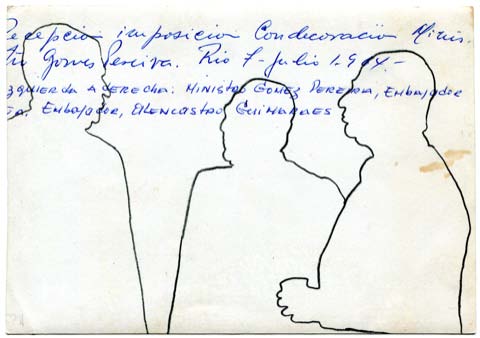 Recepcion imposicion Condecoración Minis-
tro Gomes Pereira. Rio 7-Julio 1.964.-
IZQUIERDA A DERECHA: MINISTRO GOMEZ PEREIRA, EMBAJADOR
EMBAJADOR, ALENCASTRO GUIMARAES